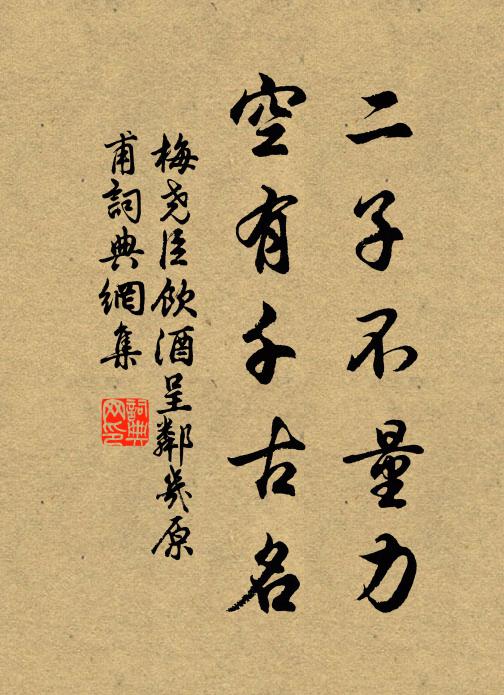 二子不量力
空有千古名
梅尧臣飲酒呈鄰幾原
甫詞典網集
詞典
网印